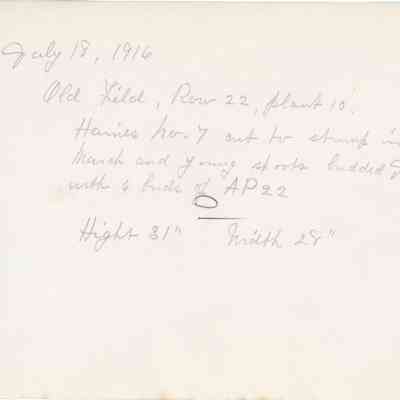 July 18, 1916
Old Field, Row 22, plant 10.
Haines No. 7 cut to stump in
March and young shoots budded
with 6 buds of AP22
Hight 31" Width 28"